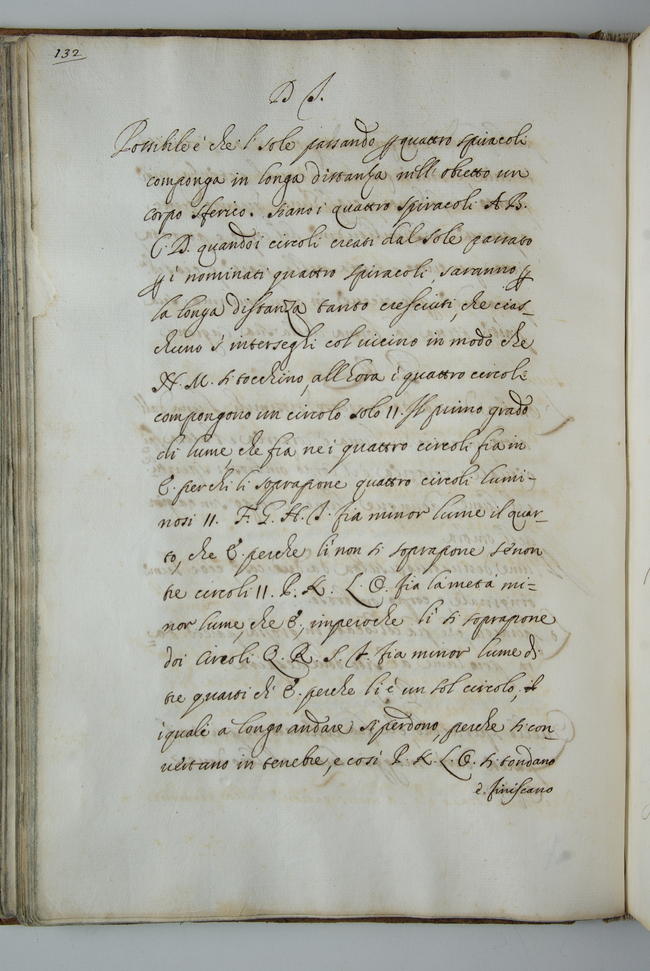 132
D J.
Possibile è che l sole passando ꝑ quattro spiracoli
componga in longa distanza nell' obietto un
corpo sferico. Siano i quattro spiracoli A B.
C. D. quando i circoli creati dal sole passato
ꝑ i nominati quattro spiracoli saranno ꝑ
la longa distanza tanto cresciuti, che cias-
chuno s' interseghi col vicino in modo che
N. M. si tocchino, all'hora i quattro circoli
compongono un circolo solo 11. Il primo grado
di lume che fia ne i quattro circoli fia in
E. perche li soprapone quattro circoli lumi-
nosi 11. F. G. H. J. fia minor lume il quar-
to, che E. perche li non si soprapone se non
tre circoli 11. P. K. L. O. fia la metà mi-
nor lume, che E, imperoche li si soprapone
doi circoli Q. R. S. T. fia minor lume di
tre quarti di E. perche li è un sol circolo,
i quali a longo andare si perdono, perche si con-
vertano in tenebre, e così P. K. L. O. si tondano
e finiscano